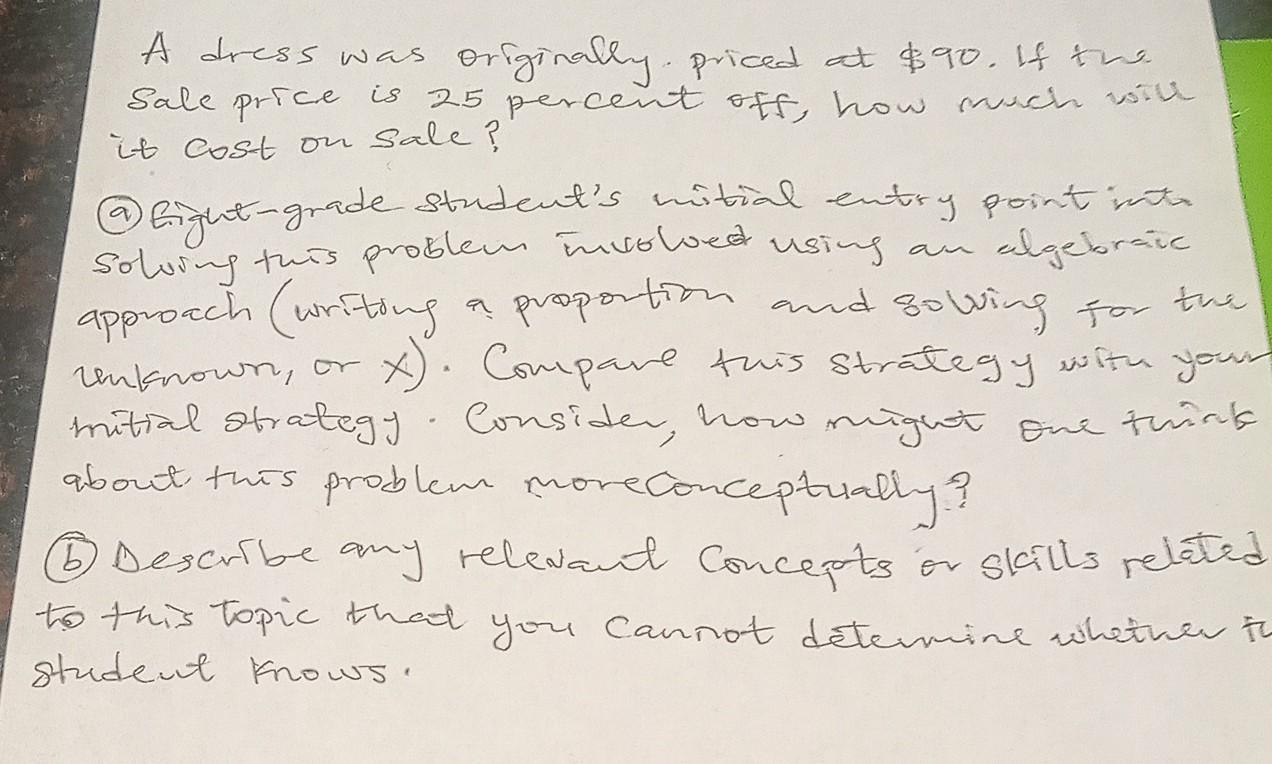 A dress was originally. priced at $90. If the
Sale price is 25 percent off, how much will
it cost on sale?
(a) Eight-grade student's initial entry point into
Solving this problem involved using an algebraic
approach (writing a proportion and solving for the
unknown, or x). Compare this strategy with your
initial strategy. Consider, how might one think
about this problem more conceptually?
(b) Describe any relevant concepts or skills related
to this topic that you cannot determine whether
student knows.